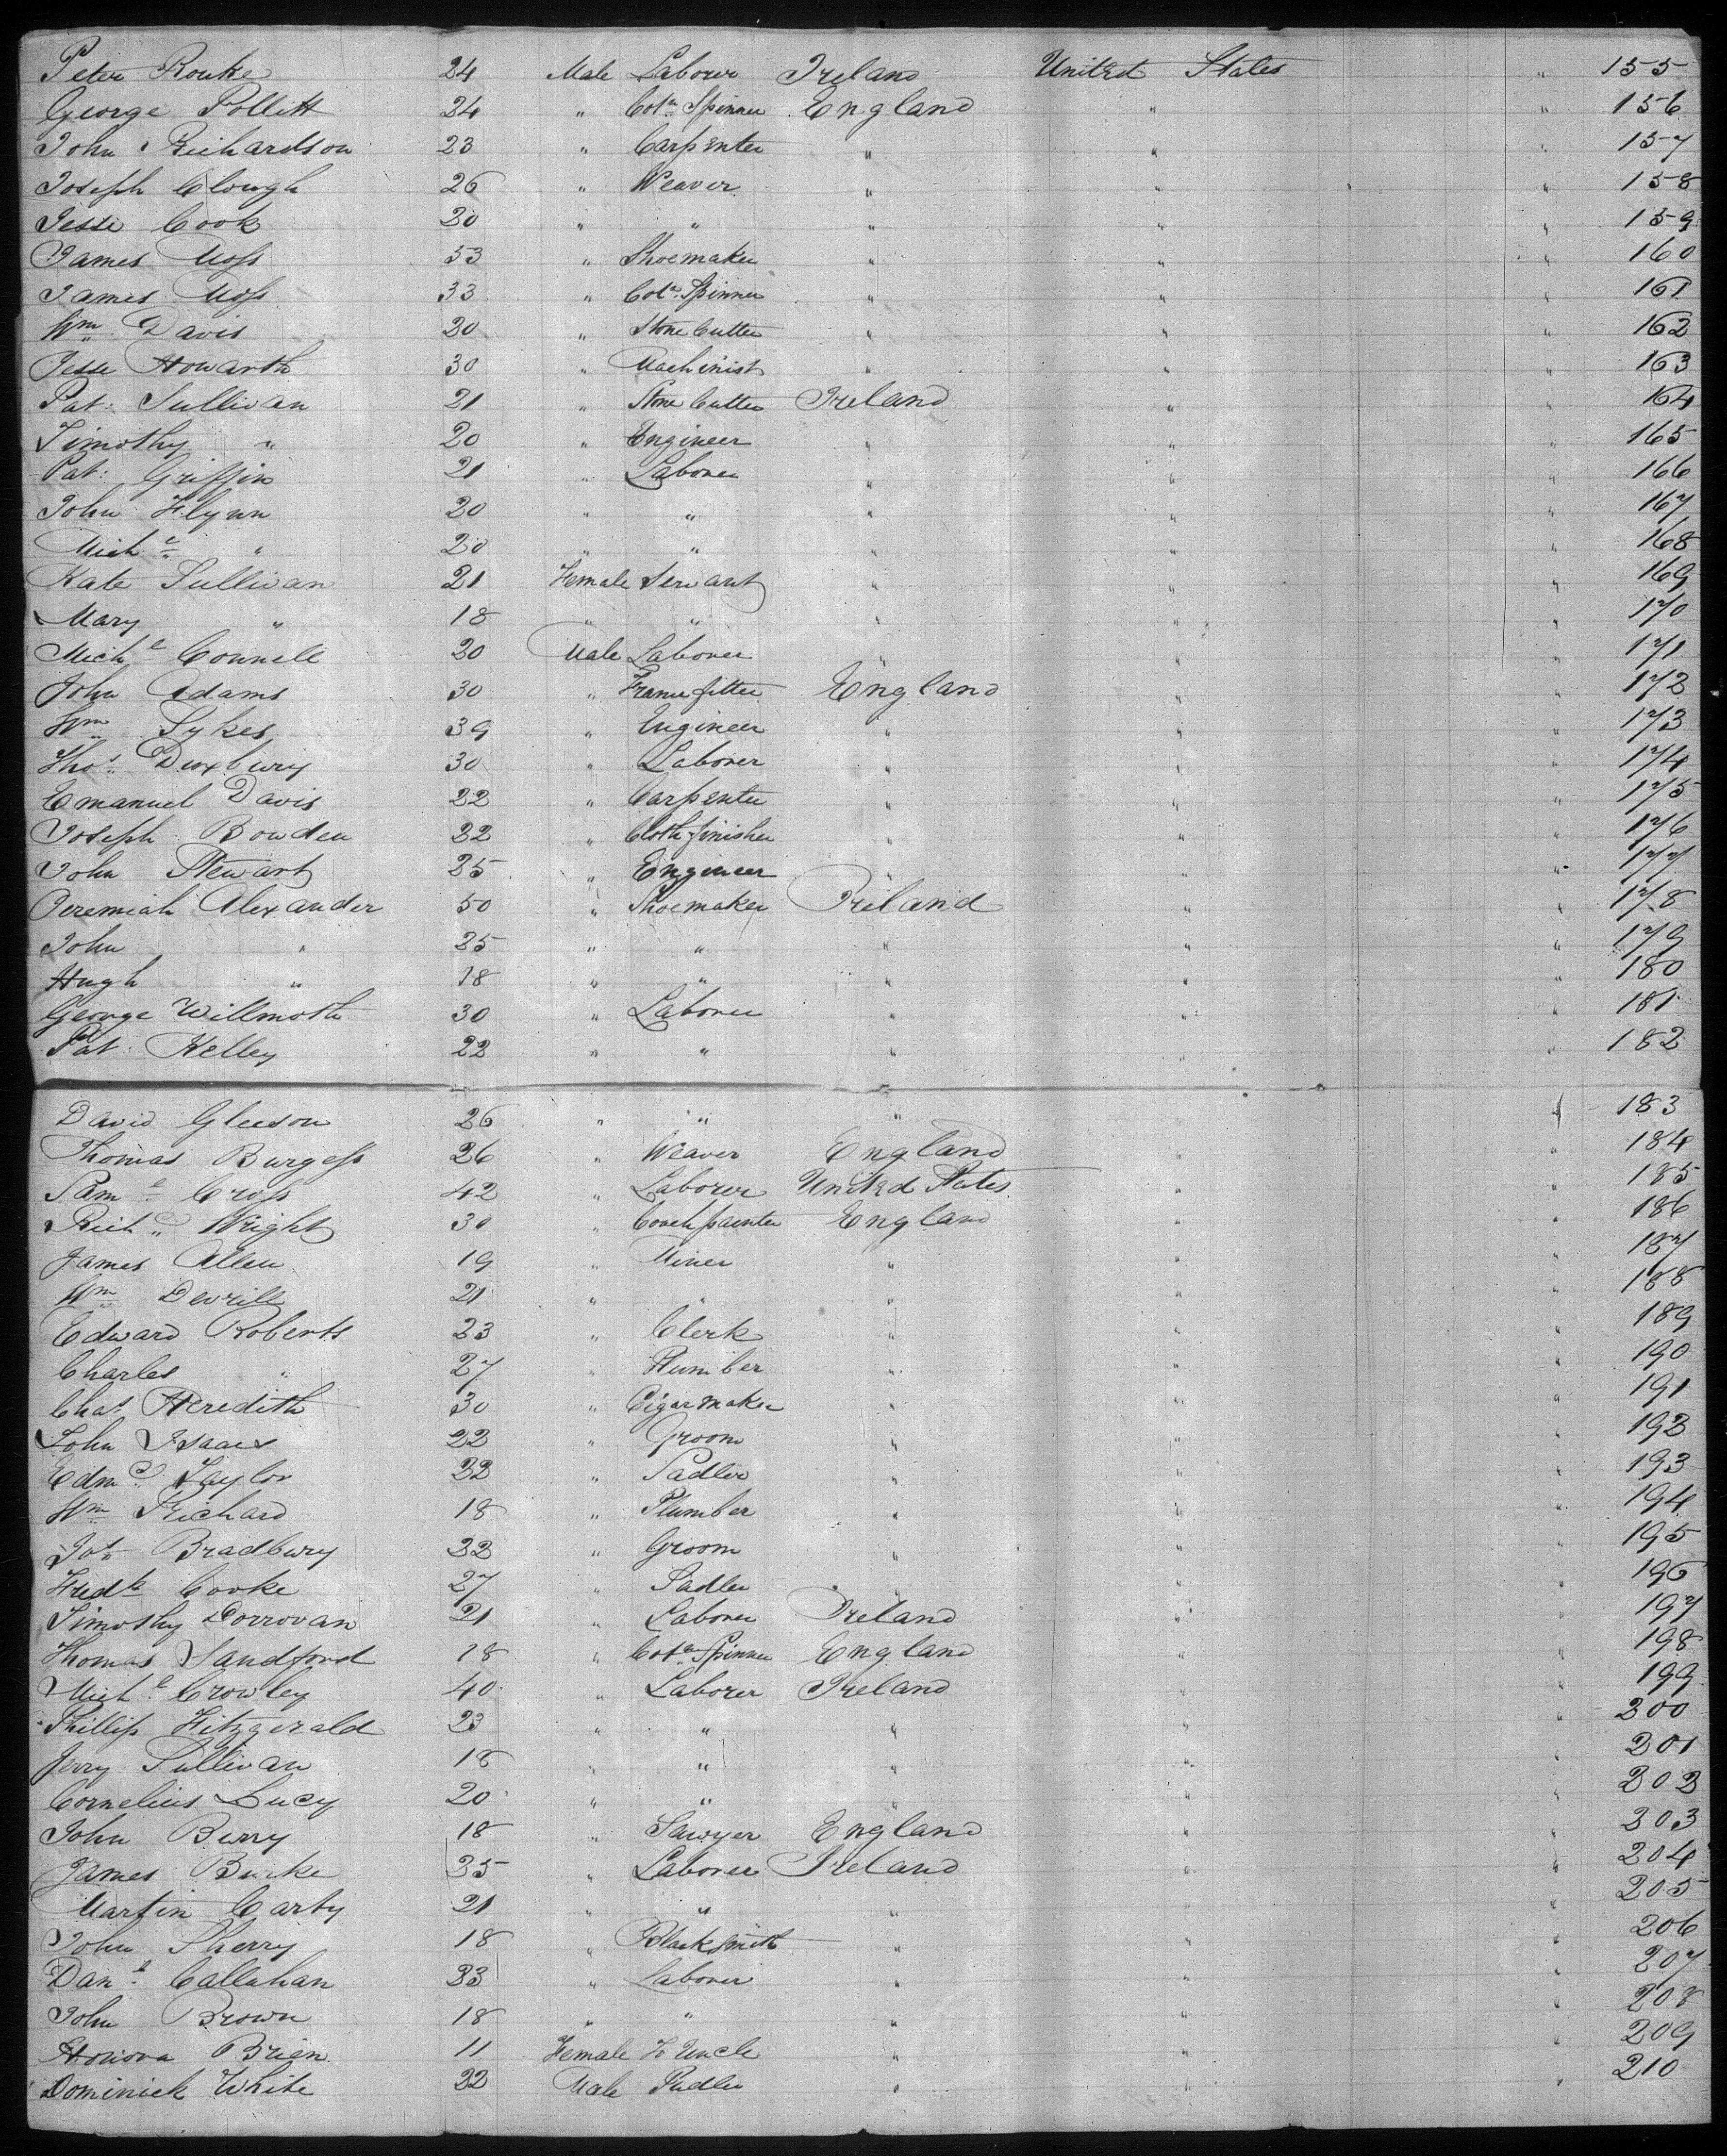 Peter Rouke 24 Male Laborer Ireland United States " 155
George Pollitt 24 " Cotn Spinner England " " 156
John Richardson 23 " Carpenter " " " 157
Joseph Clough 26 " Weaver " " " 158
Jesse Cook 20 " " " " " 159
James Moss 53 " Shoemaker " " " 160
James Moss 33 " Cotn Spinner " " " 161
Wm Davis 20 " Stone Cutter " " " 162
Jesse Howarth 30 " Machinist " " " 163
Pat: Sullivan 21 " Stone Cutter Ireland " " 164
Timothy " 20 " Engineer " " " 165
Pat: Griffin 21 " Laborer " " " 166
John Flynn 20 " " " " " 167
Michl " 20 " " " " " 168
Kate Sullivan 21 Female Servant " " " 169
Mary " 18 " " " " " 170
Michl Connell 20 Male Laborer " " " 171
John Adams 30 " Frame fitter England " " 172
Wm Sykes 39 " Engineer " " " 173
Thos Duxbury 30 " Laborer " " " 174
Emanuel Davis 22 " Carpenter " " " 175
Joseph Bowden 22 " Cloth finisher " " " 176
John Stewart 25 " Engineer " " " 177
Jeremiah Alexander 50 " Shoemaker Ireland " " 178
John " 25 " " " " " 179
Hugh " 18 " " " " " 180
George Willmoth 30 " Laborer " " " 181
Pat: Kelley 22 " " " " " 182
David Gleeson 26 " " " " " 183
Thomas Burgess 26 " Weaver England " " 184
Saml Cross 42 " Laborer United States " " 185
Richd Wright 30 " Coach painter England " " 186
James Allen 19 " Miner " " " 187
Wm 21 " " " " " 188
Edward Roberts 23 " Clerk " " " 189
Charles " 27 " Plumber " " " 190
Chas Meredith 30 " Cigar maker " " " 191
John Isaacs 22 " Groom " " " 192
Edmd Taylor 22 " Sadler " " " 193
Wm Richard 18 " Plumber " " " 194
Jos Bradbury 22 " Groom " " " 195
Fredk Cooke 27 " Sadler " " " 196
Timothy Dorrovan 21 " Laborer Ireland " " 197
Thomas Sandford 18 " Cotn Spinner England " " 198
Michl Crowley 40 " Laborer Ireland " " 199
Phillip Fitzgerald 23 " " " " " 200
Jerry Sullivan 18 " " " " " 201
Cornelius Lucy 20 " " " " " 202
John Berry 18 " Sawyer England " " 203
James Burke 35 " Laborer Ireland " " 204
Martin Carty 21 " " " " " 205
John Sherry 18 " Blacksmith " " " 206
Danl Callahan 33 " Laborer " " " 207
John Brown 18 " " " " " 208
Honora Brien 11 Female To Uncle " " " 209
Dominick White 22 Male " " " 210